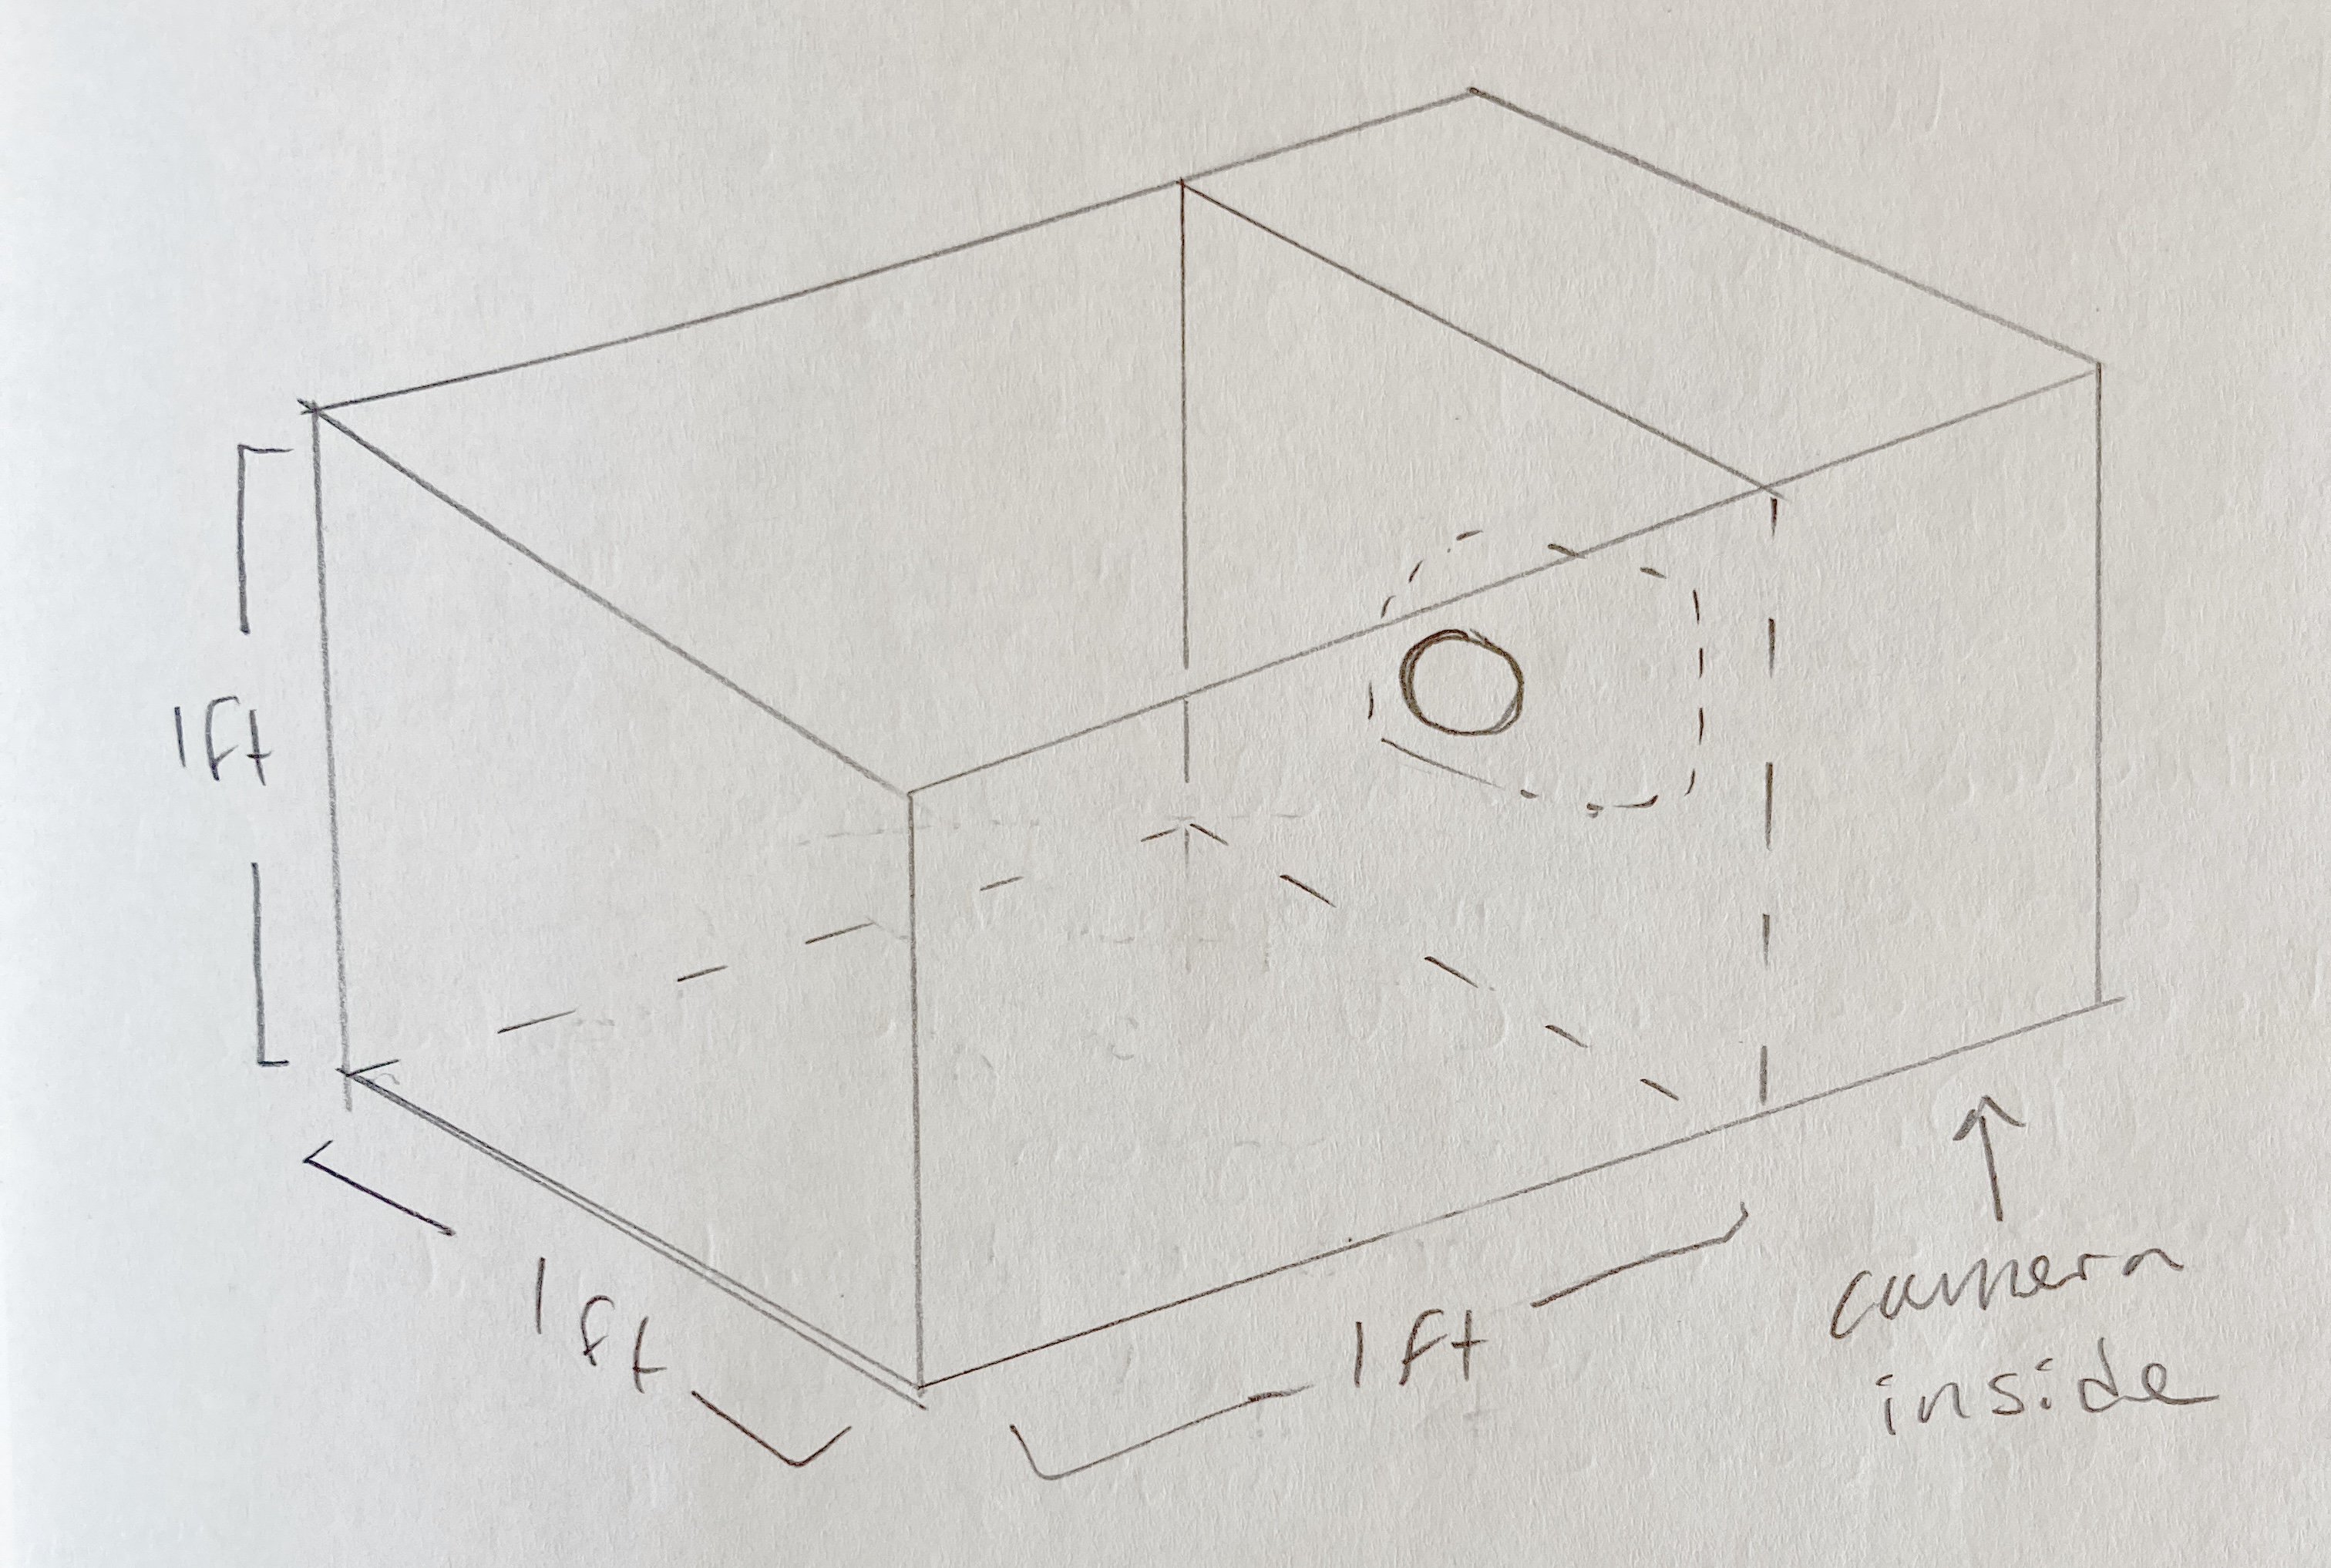 1ft
1ft
1ft
camera
inside